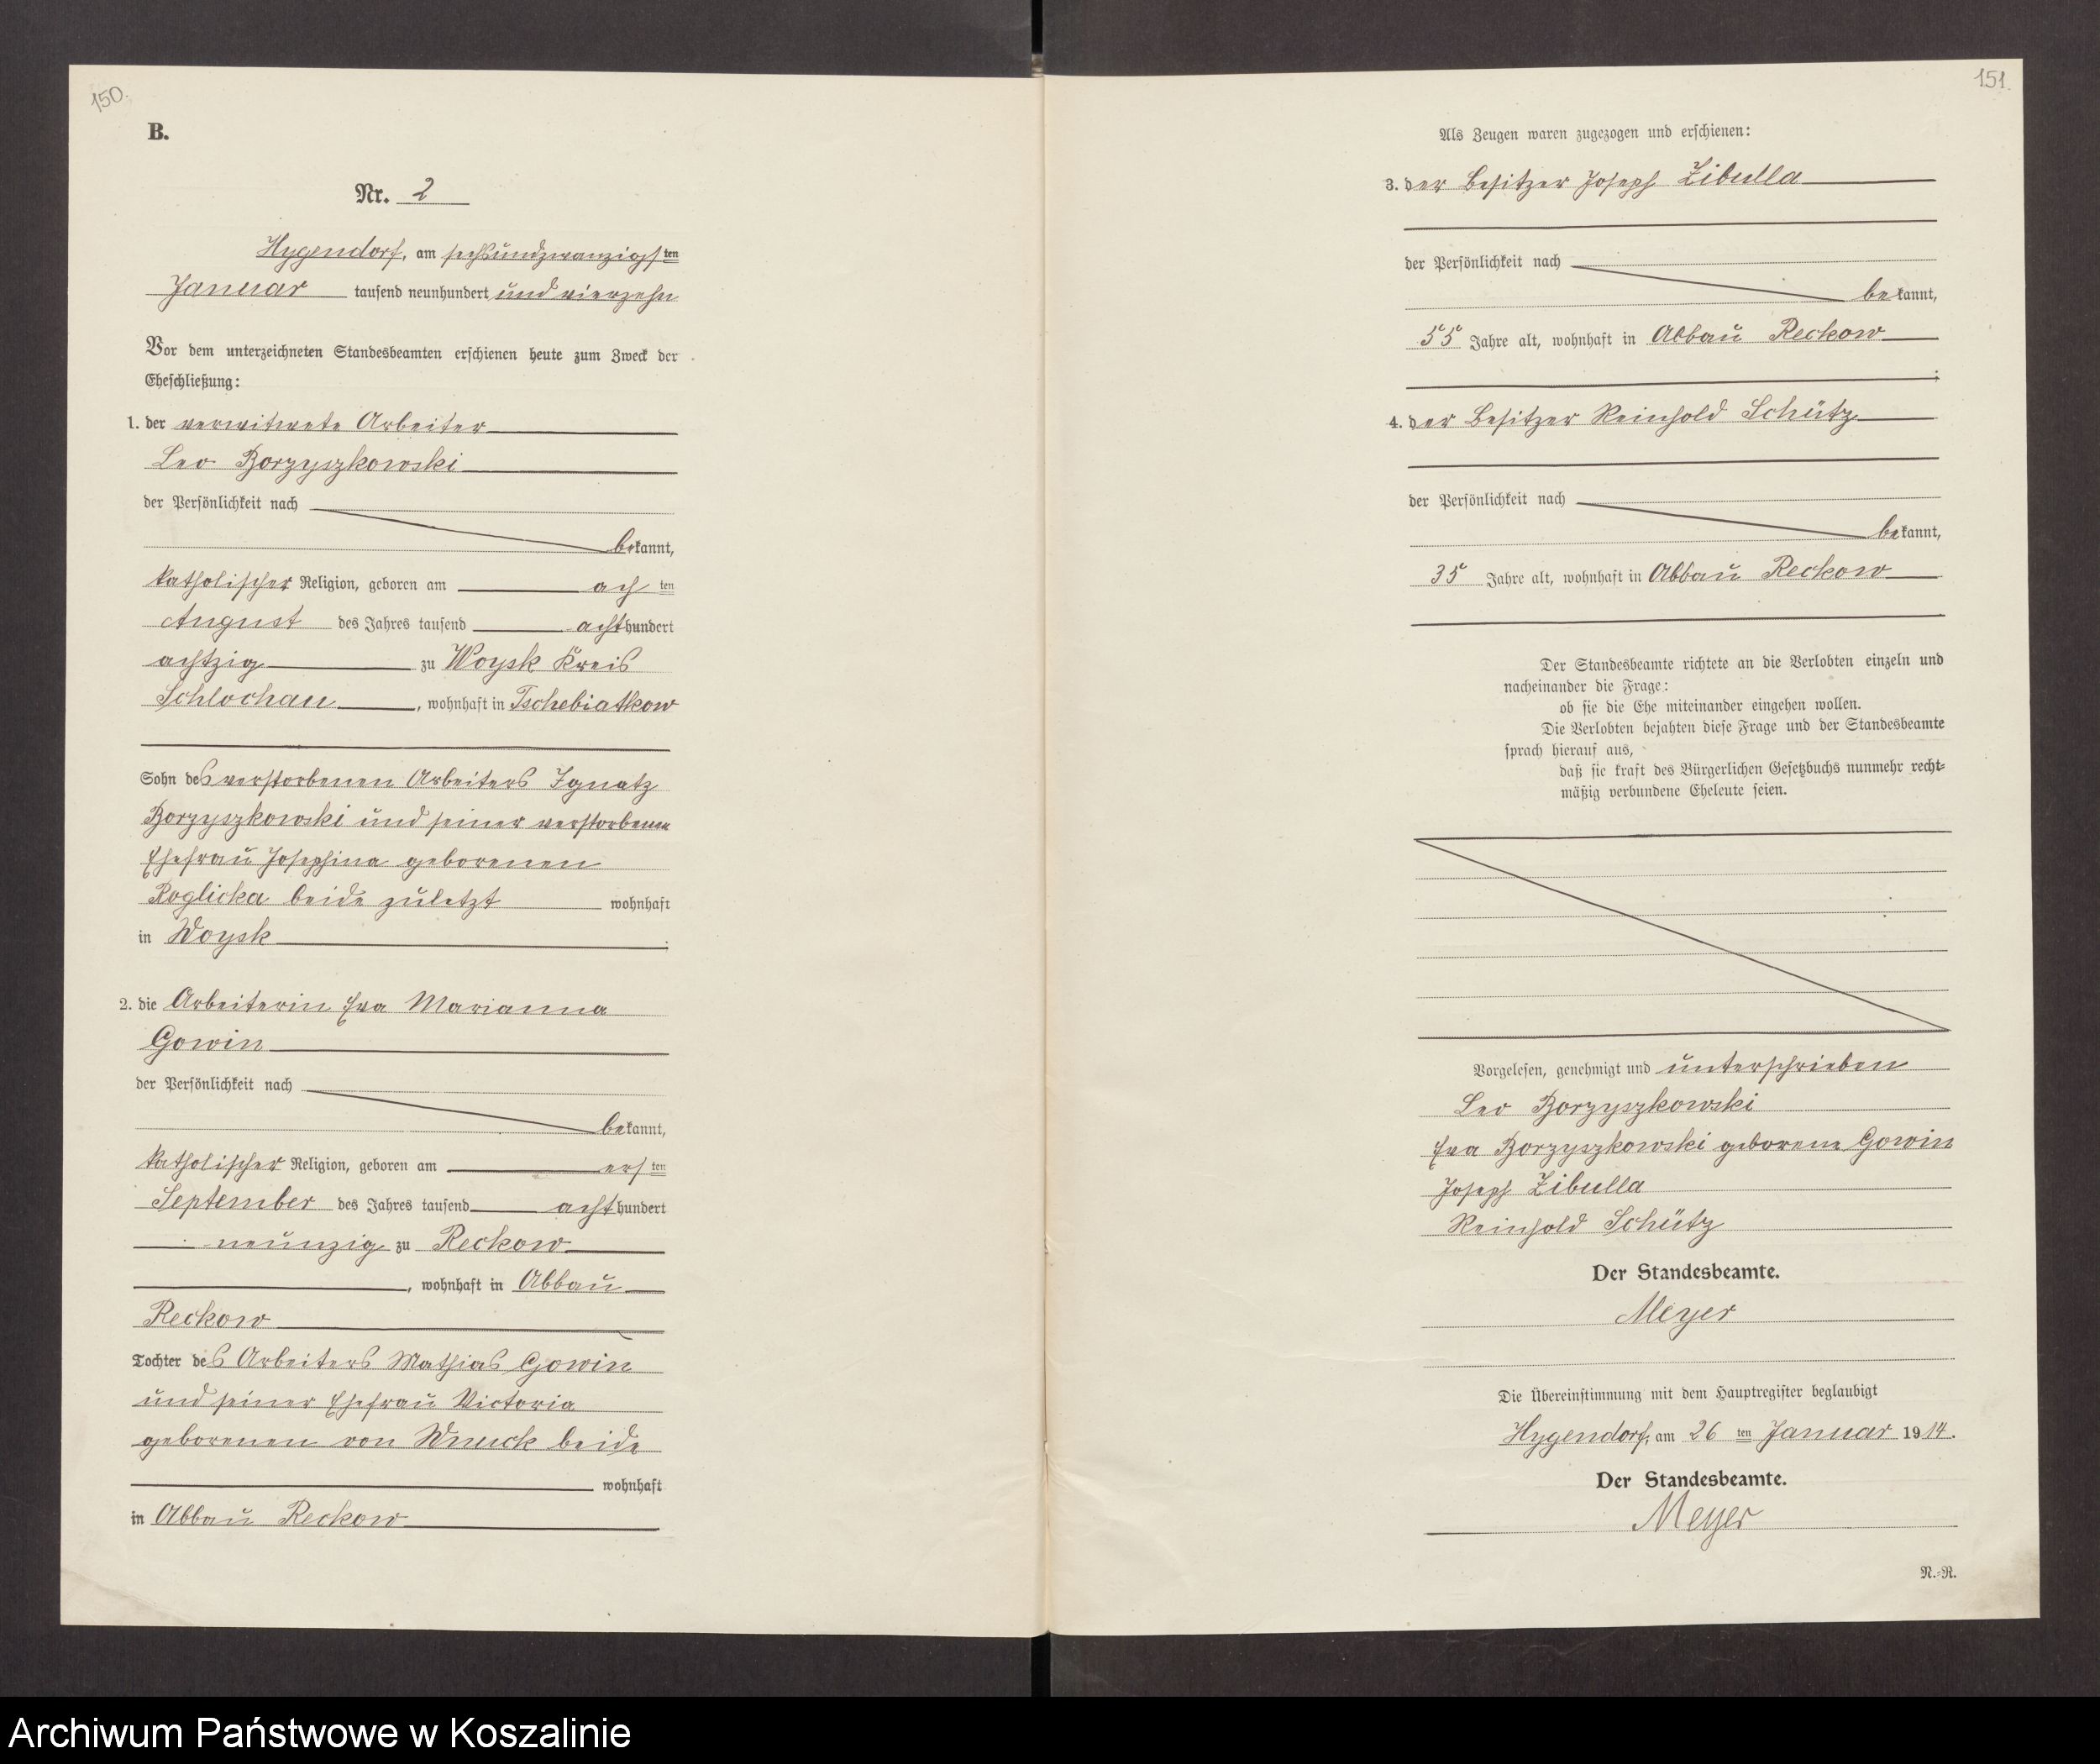 150.
B.
Nr. 2
Hygendorf, am sechsundzwanzigsten
Januar tausend neunhundert und vierzehn
Vor dem unterzeichneten Standesbeamten erschienen heute zum Zweck der
Eheschließung:
1. der verwitwete Arbeiter
Leo Borzyszkowski
der Persönlichkeit nach
bekannt,
katholischer Religion, geboren am achten
August des Jahres tausend achthundert
achtzig zu Woysk Kreis
Schlochau, wohnhaft in Tschebiatkow
Sohn des verstorbenen Arbeiters Ignatz
Borzyszkowski und seiner verstorbenen
Ehefrau Josephina geborenen
Roglicka beide zuletzt wohnhaft
in Woysk.
2. die Arbeiterin Eva Marianna
Gowin
der Persönlichkeit nach
bekannt,
katholischer Religion, geboren am ersten
September des Jahres tausend achthundert
neunzig zu Reckow
, wohnhaft in Abbau
Reckow
Tochter des Arbeiters Mathias Gowin
und seiner Ehefrau Victoria
geborenen von Wnuck beide
wohnhaft
in Abbau Reckow
151.
Als Zeugen waren zugezogen und erschienen:
3. der Besitzer Joseph Zibulla
der Persönlichkeit nach
bekannt,
55 Jahre alt, wohnhaft in Abbau Reckow
;
4. der Besitzer Reinhold Schütz
der Persönlichkeit nach
bekannt,
35 Jahre alt, wohnhaft in Abbau Reckow
Der Standesbeamte richtete an die Verlobten einzeln und
nacheinander die Frage:
ob sie die Ehe miteinander eingehen wollen.
Die Verlobten bejahten diese Frage und der Standesbeamte
sprach hierauf aus,
daß sie kraft des Bürgerlichen Gesetzbuchs nunmehr recht-
mäßig verbundene Eheleute seien.
Vorgelesen, genehmigt und unterschrieben
Leo Borzyszkowski
Eva Borzyszkowski geborene Gowin
Joseph Zibulla
Reinhold Schütz
Der Standesbeamte.
Meyer
Die Übereinstimmung mit dem Hauptregister beglaubigt
Hygendorf, am 26 ten Januar 1914.
Der Standesbeamte.
Meyer
N.-R.
Archiwum Państwowe w Koszalinie